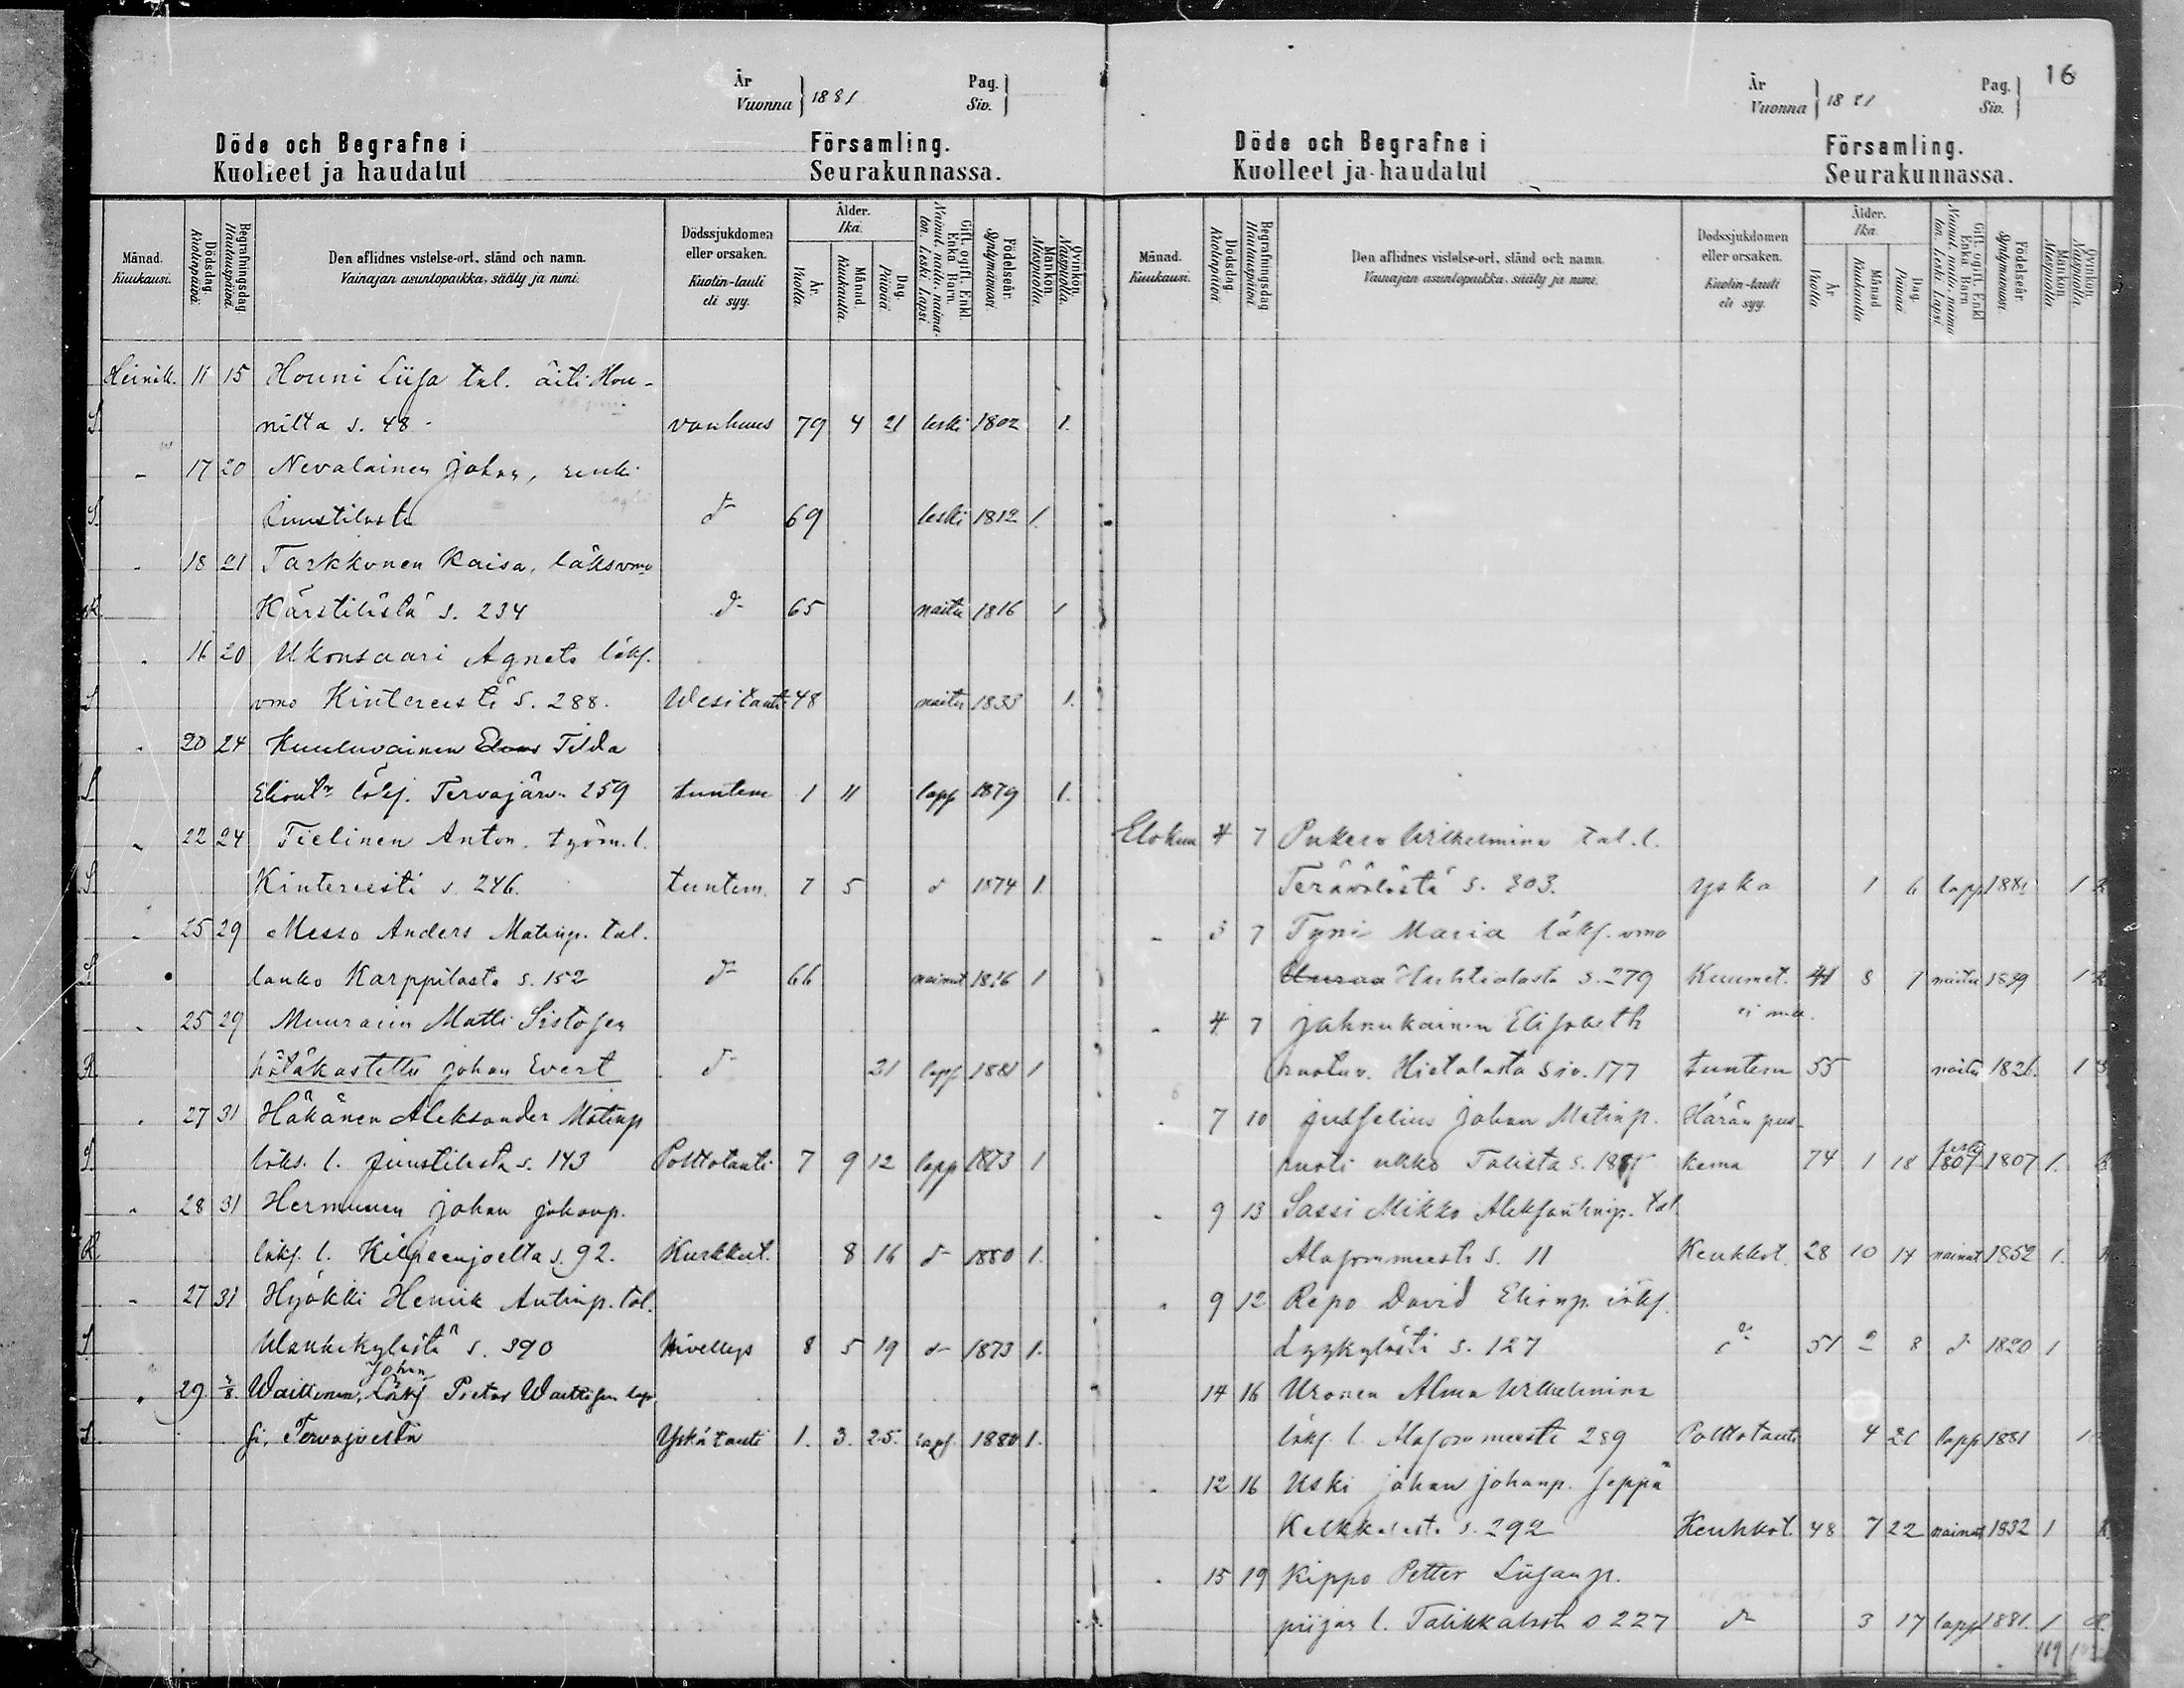 År
Vuonna } 1881
Pag.
Siv.
Döde och Begrafne i Församling.
Kuolleet ja haudatut Seurakunnassa.
Månad. Kuukausi.
Dödsdag. Kuolinpäivä.
Begrafningsdag Hautauspäivä.
Den aflidnes vistelse-ort, stånd och namn.
Vainajan asuntopaikka, sääty ja nimi.
Dödssjukdomen eller orsaken.
Kuolin-tauti eli syy.
Ålder. Ikä.
År. Vuotta.
Månad. Kuukautta.
Dag. Päivää.
Gift, ogift, Enkl. Enka, Barn.
Nainut, naitu, naimaton. Leski. Lapsi
Födelseår. Syntymävuosi.
Mankön. Miespuolia.
Qvinkön. Naispuolia.
Heinäk. 11 15 Houni Liisa tal. äiti Hou-
S. nilta s. 48. vanhuus 79 4 21 leski 1802 1.
- 17 20 Nevalainen Johan, renki
S. Juustilasta d:o 69 leski 1812 1.
- 18 21 Tarkkonen Kaisa, läksvmo
R. Kärstilästä s. 234 d:o 65 naitu 1816 1
- 16 20 Ukonsaari Agneta läks.
S vmo Kintereestä s. 288. Wesitauti 48 naitu 1833 1.
- 20 24 Kuuluvainen Tilda
S Eliont:r läks. Tervajärv. 259 tuntem 1 11 laps 1879 1.
- 22 24 Tielinen Anton. työm. l.
S. Kintereesti s. 246. tuntem. 7 5 d 1874 1.
- 25 29 Messo Anders Matinp. tal.
S. lanko Karppilasta s. 152 d:o 66 nainut 1816 1
- 25 29 Muurain Matti Sistosen
R hätäkastettu Johan Evert d:o 21 laps 1881 1
- 27 31 Häkänen Aleksander Matinp
S. läks. l. Juustilasta s. 143 Polttotauti 7 9 12 laps 1873 1
- 28 31 Hermunen Johan Johanp.
R läks. l. Kilpeenjoelta s. 92. Kurkkut. 8 16 d:o 1880 1.
- 27 31 Hyökki Henrik Antinp. tal.
S. Wankkylästä s. 390 Kivellys 8 5 19 d:o 1873 1.
- 29 2/8. Waittinen, Johan Läks Pietar Waittisen lap
S. si, Tervajoelta Yskätauti 1. 3. 25. laps. 1880 1.
År
Vuonna } 1881
Pag.
Siv. } 16
Döde och Begrafne i Församling.
Kuolleet ja haudatut Seurakunnassa.
Månad. Kuukausi.
Dödsdag. Kuolinpäivä.
Begrafningsdag Hautauspäivä.
Den aflidnes vistelse-ort, stånd och namn.
Vainajan asuntopaikka, sääty ja nimi.
Dödssjukdomen eller orsaken.
Kuolin-tauti eli syy.
Ålder. Ikä.
År Vuotta.
Månad. Kuukautta
Dag. Päivää.
Gift, ogift, Enkl. Enka, Barn
Nainut, naitu, naimaton. Leski. Lapsi
Födelseår. Syntymävuosi.
Mankön. Miespuolia.
Qvinkön. Naispuolia.
Elokuu 4 7 Pukero Wilhelmina tal. l.
Terävälästä s. 303. yskä 1 6 laps 1881 1
- 3 7 Tyni Maria läks. vmo
Huhtialasta s. 279 Kuumet. 41 8 1 naitu 1839 1
- 4 7 Jahnukainen Elisabeth
ruotuv. Hietalasta siv. 177 tuntem 55 naitu 1826. 1
- 7 10 Juhselius Johan Matinp. Härän pus-
ruoti ukko Talista s. 188 kema 74 1 18 leski 1807 1807 1.
- 9 13 Sassi Mikko Aleksanterinp. tal.
Alasommeesta s. 11 Keuhkot. 28 10 14 nainut 1852 1.
- 9 12 Repo David Elianp. läks.
Lyykylästä s. 127 d:o 51 2 8 d 1820 1
14 16 Uronen Alma Wilhelmina
läks. l. Alasommeesta 289 Polttotauti 4 21 laps 1881 1
- 12 16 Uski Johan Johanp. seppä
Kelkkalasta s. 292 Keuhkot. 48 7 22 nainut 1832 1
- 15 19 Kippo Petter Liisanp.
piijan l. Talikkalasta s 227 d:o 3 17 laps 1881. 1
169